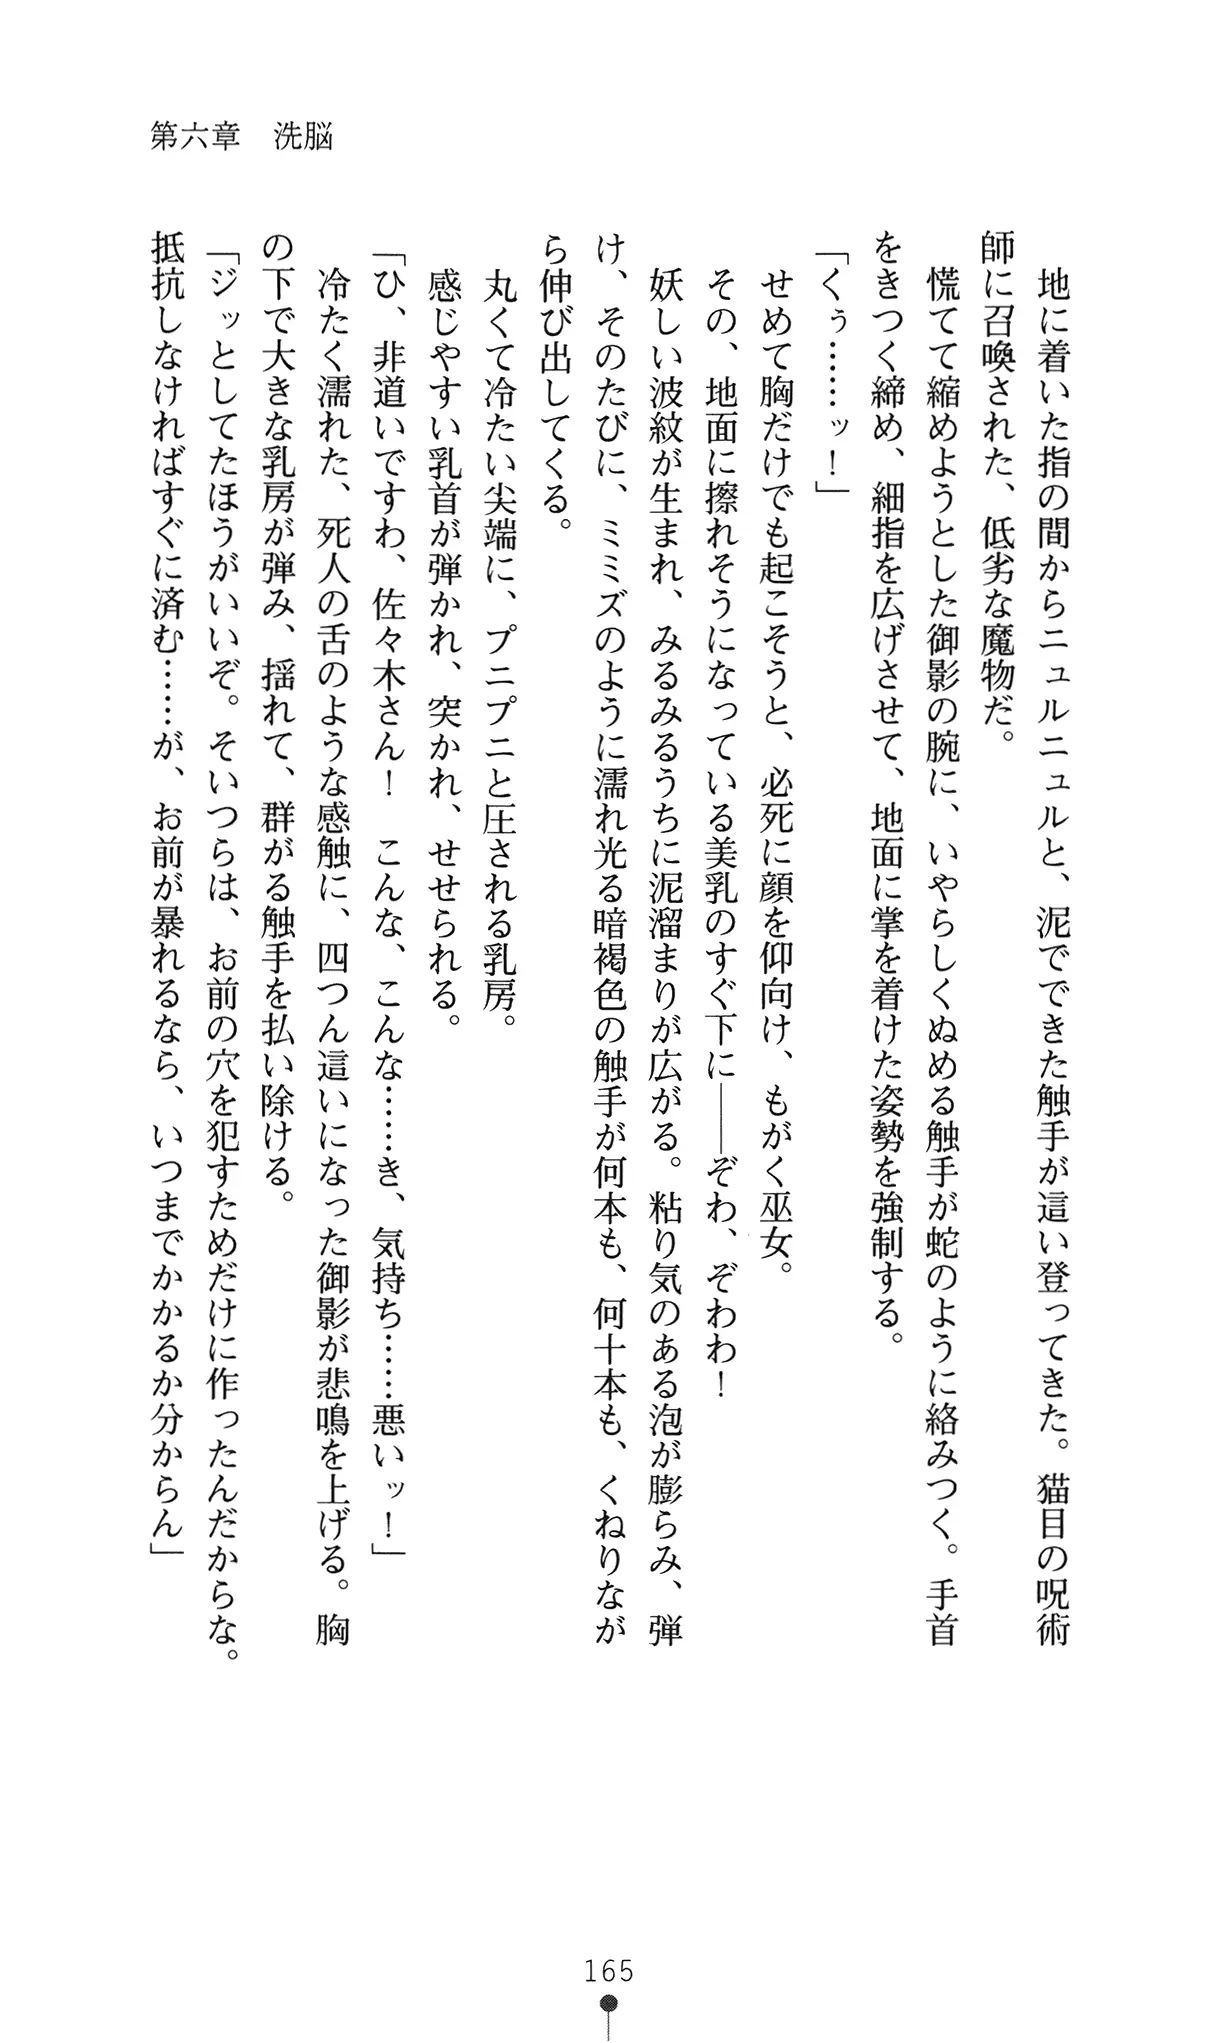 第六章　洗脳
　地に着いた指の間からニュルニュルと、泥でできた触手が這い登ってきた。猫目の呪術
師に召喚された、低劣な魔物だ。
　慌てて縮めようとした御影の腕に、いやらしくぬめる触手が蛇のように絡みつく。手首
をきつく締め、細指を広げさせて、地面に掌を着けた姿勢を強制する。
「くぅ……ッ！」
　せめて胸だけでも起こそうと、必死に顔を仰向け、もがく巫女。
　その、地面に擦れそうになっている美乳のすぐ下に――ぞわ、ぞわわ！
　妖しい波紋が生まれ、みるみるうちに泥溜まりが広がる。粘り気のある泡が膨らみ、弾
け、そのたびに、ミミズのように濡れ光る暗褐色の触手が何本も、何十本も、くねりなが
ら伸び出してくる。
　丸くて冷たい尖端に、プニプニと圧される乳房。
　感じやすい乳首が弾かれ、突かれ、せせられる。
「ひ、非道いですわ、佐々木さん！　こんな、こんな……き、気持ち……悪いッ！」
　冷たく濡れた、死人の舌のような感触に、四つん這いになった御影が悲鳴を上げる。胸
の下で大きな乳房が弾み、揺れて、群がる触手を払い除ける。
「ジッとしてたほうがいいぞ。そいつらは、お前の穴を犯すためだけに作ったんだからな。
抵抗しなければすぐに済む……が、お前が暴れるなら、いつまでかかるか分からん」
165